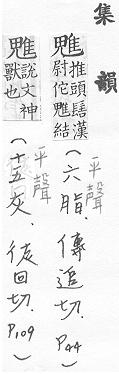 集韻
魋
推頭髻漢
尉佗魋結
平聲
(六脂、傳追切.P44)
魋
說文神
獸也
平聲
(十五灰、徒回切.P109)